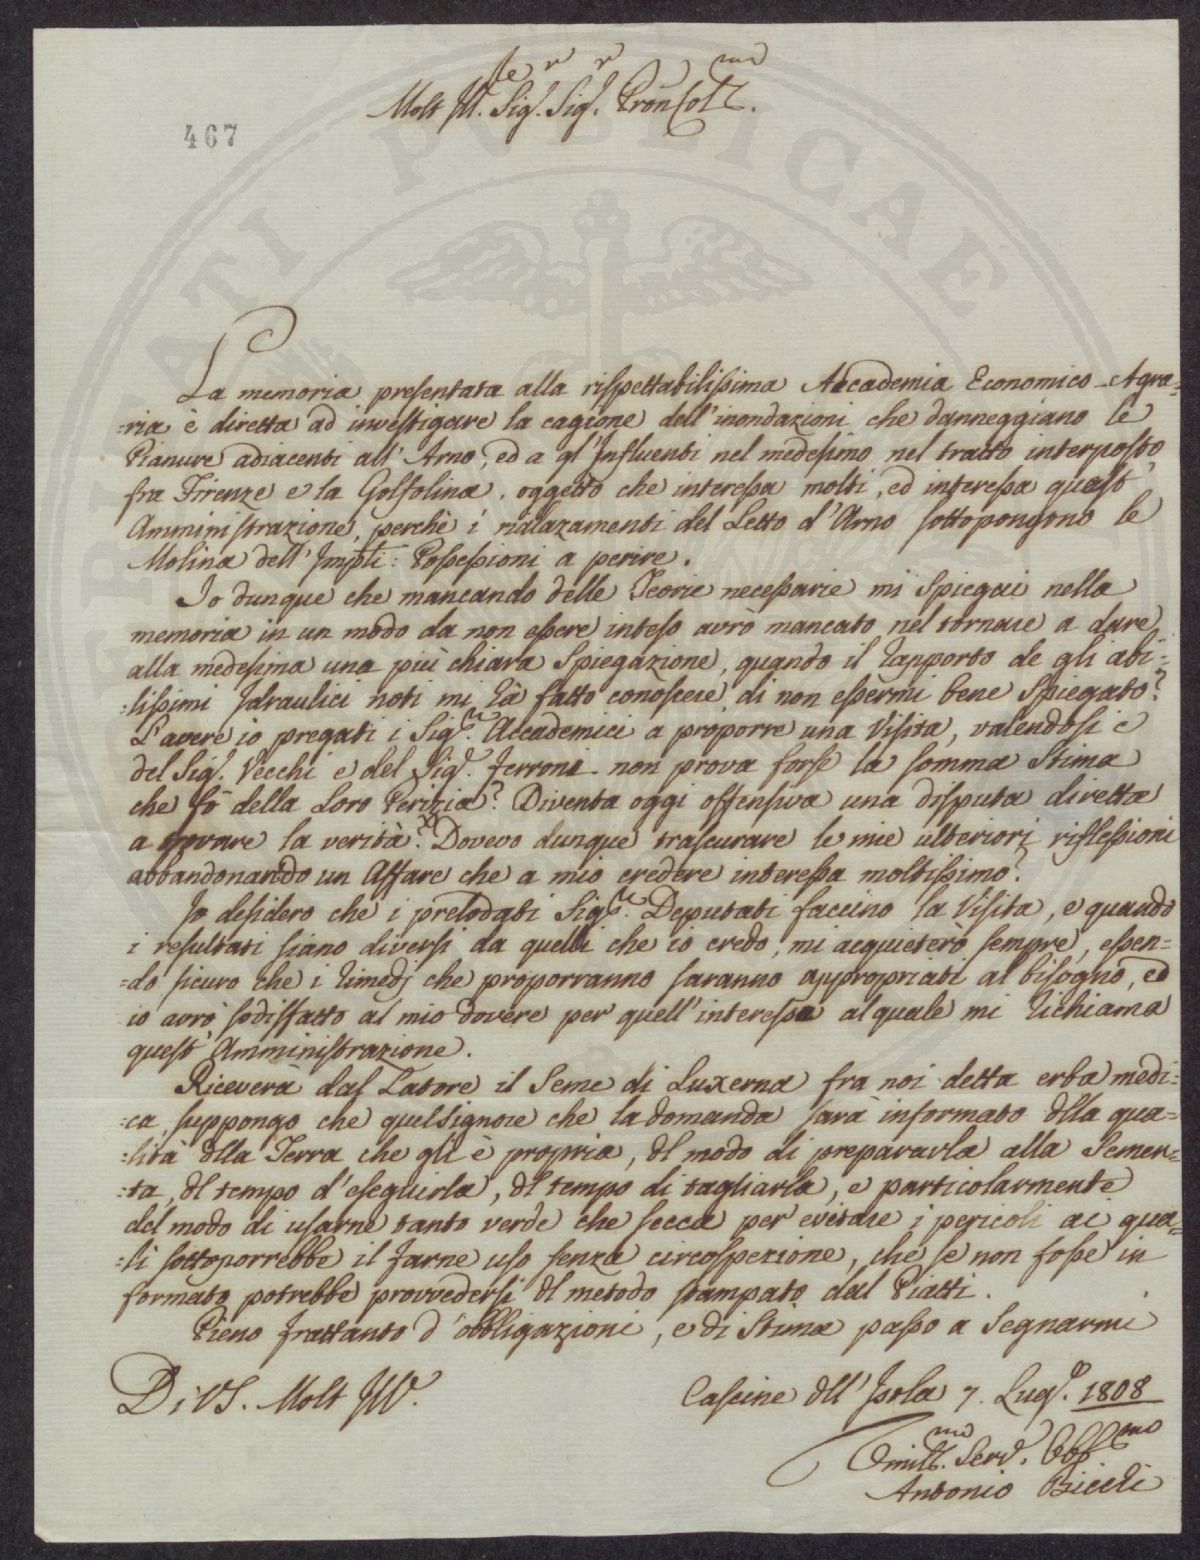 Molt Ill.re Sig.r Sig.r Pron Col.mo
467
La memoria presentata alla rispettabilissima Accademia Economico-Agra=
=ria è diretta ad investigare la cagione dell'inondazioni che danneggiano le
Pianure adiacenti all'Arno, ed a gl'Influenti nel medesimo nel tratto interposto
fra Firenze e la Golfolina, oggetto che interessa molti, ed interessa quest'
Amministrazione, perchè i rialzamenti del Letto d'Arno sottopongono le
Molina dell'Imp̃li: Possessioni a perire.
Io dunque che mancando delle Teorie necessarie mi spiegai nella
memoria in un modo da non essere inteso avrò mancato nel tornare a dare
alla medesima una più chiara spiegazione, quando il rapporto de gli abi=
=lissimi Idraulici noti mi hà fatto conoscere di non essermi bene spiegato?
L'avere io pregati i Sig.ri Accademici a proporre una Visita, valendosi e
del Sig.r Vecchi e del Sig.r Ferroni non prova forse la somma stima
che fò della loro Perizia? Diventa oggi offensiva una disputa diretta
a trovare la verità? Dovevo dunque trascurare le mie ulteriori riflessioni
abbandonando un Affare che a mio credere interessa moltissimo?
Io desidero che i prelodati Sig.ri Deputati faccino la Visita, e quando
i resultati siano diversi da quelli che io credo, mi acquieterò sempre, essen=
=do sicuro che i rimedj che proporranno saranno appropriati al bisogno, ed
io avrò sodisfatto al mio dovere per quell'interesse al quale mi richiama
quest'Amministrazione.
Riceverà dal Latore il seme di Luxerna fra noi detta erba medi=
=ca, suppongo che quel signore che la domanda sarà informato dlla qua=
=lità dlla Terra che gli è propria, dl modo di prepararla alla semen=
=ta, dl tempo d'eseguirla, dl tempo di tagliarla, e particolarmente
del modo di usarne tanto verde che secca per evitare i pericoli ai qua=
=li sottoporrebbe il farne uso senza circospezione, che se non fosse in
formato potrebbe provvedersi dl metodo stampato dal Piatti.
Pieno frattanto d'obbligazioni, e di Stima passo a segnarmi
Di VS. Molt Ill.
Cascine dll'Isola 7. Lug.o 1808
Umill.mo Serv. Obb.mo
Antonio Biccli
PUBLICAE